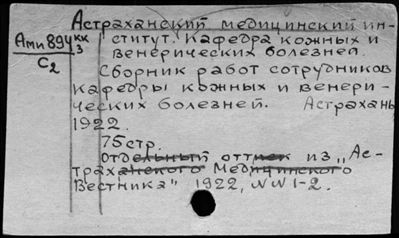 Астраханский медицинский ин-
ститут. Кафедра кожных и
венерических болезней.
Ами 894 кк
3
С2
Сборник работ сотрудников
кафедры кожных и венери-
ческих болезней. Астрахань
1922.
75 стр.
Отдельный оттиск из „Ас-
траханского Медицинского
Вестника" 1922, NN 1-2.